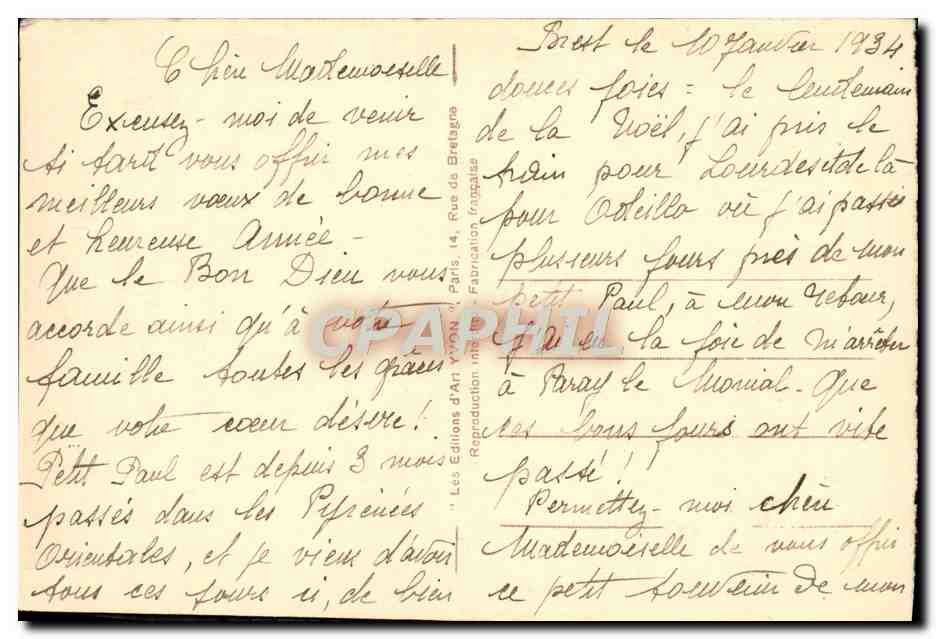 Brest le 10 Janvier 1934
Chère Mademoiselle
Excusez-moi de venir
si tard vous offrir mes
meilleurs vœux de bonne
et heureuse Année -
Que le Bon Dieu vous
accorde ainsi qu'à votre
famille toutes les grâces
que votre cœur désire!
Petit Paul est depuis 3 mois
passés dans les Pyrénées
Orientales, et je viens d'avoir
tous ces jours ci, de bien
douces joies = le lendemain
de la Noël, j'ai pris le
train pour Lourdes et de là
pour Odeillo où j'ai passé
plusieurs jours près de mon
petit Paul, à mon retour,
j'ai eu la joie de m'arrêter
à Paray le Monial - Que
ces bons jours ont vite
passé!
Permettez-moi chère
Mademoiselle de vous offrir
ce petit souvenir de mon
" Les Editions d'Art YVON ", Paris, 14, Rue de Bretagne
Reproduction interdite - Fabrication française
CPAPHIL